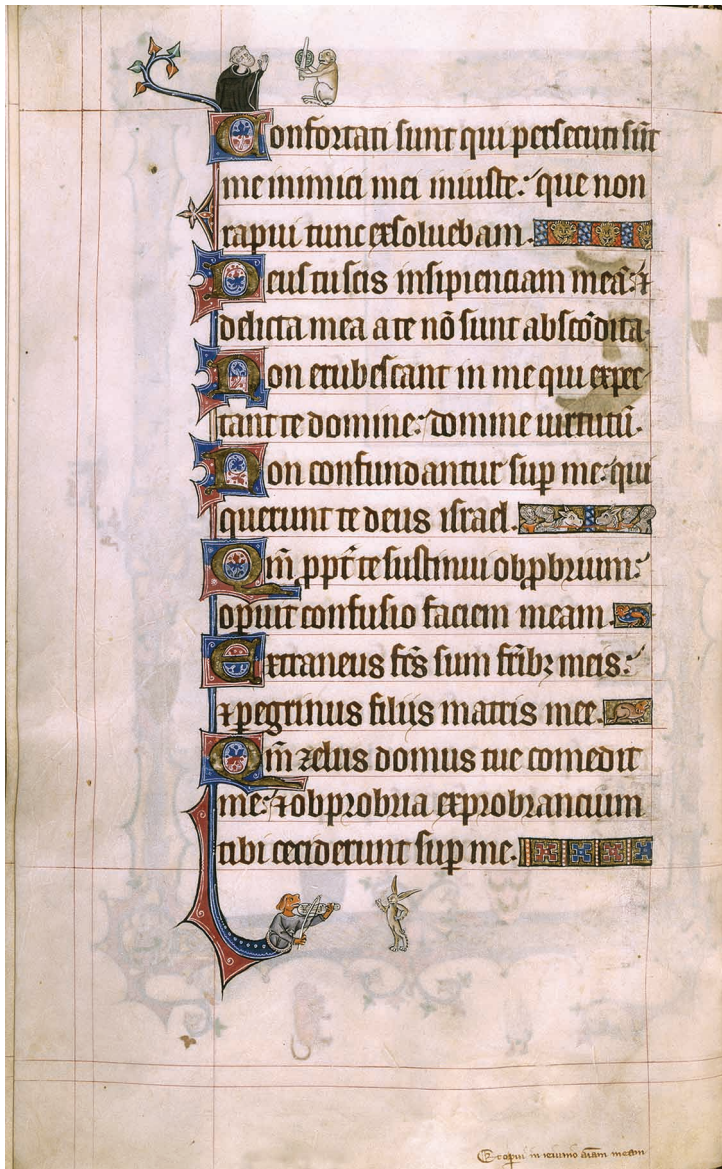 Confortati sunt qui persecuti sūt
me inimici mei iniuste: que non
rapui tunc exsoluebam.
Deus tu scis insipienciam meā: ⁊
delicta mea a te nō sunt abscōdita.
Non erubescant in me qui expec
tant te domine: domine uirtutū.
Non confundantur sup me: qui
querunt te deus israel.
Qm̄ ppt̄ te sustinui obpbrium:
opuit confusio faciem meam.
Extraneus fc̄s sum frībꝫ meis:
⁊ peregrinus filiis matris mee.
Qm̄ zelus domus tue comedit
me: ⁊ obprobria exprobrancium
tibi ceciderunt sup me.
Et opui in ieiunio aīam meam